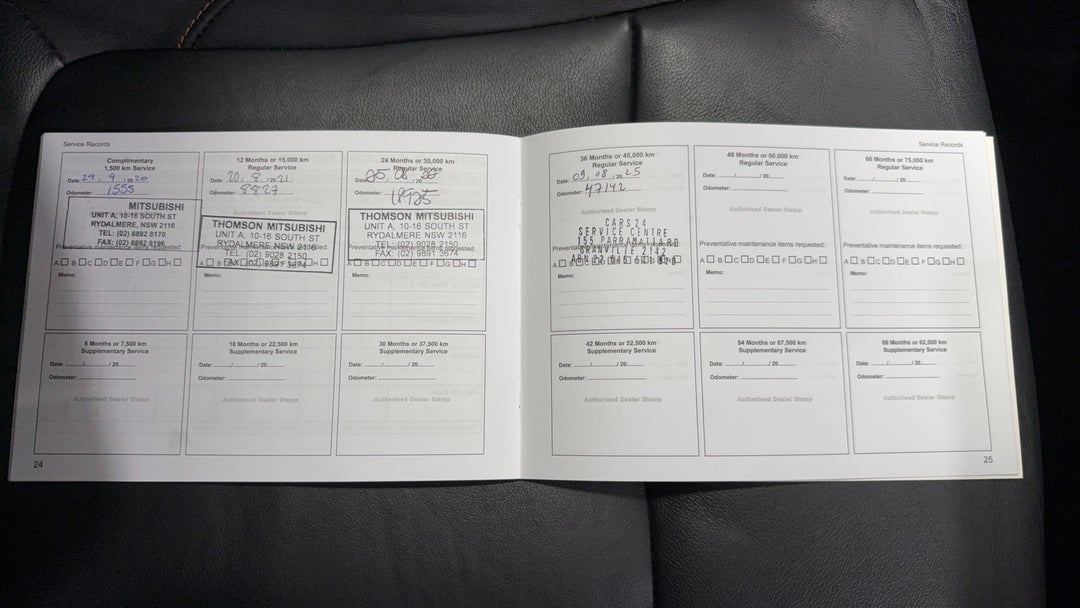 Service Records
Complimentary
1,500 km Service
Date: 29 / 9 / 2020
Odometer: 1555
MITSUBISHI
UNIT A, 10-16 SOUTH ST
RYDALMERE, NSW 2116
TEL: (02) 8892 8170
FAX: (02) 8892 8196
Preventative maintenance items requested:
A B C D E F G H
Memo:
12 Months or 15,000 km
Regular Service
Date: 20 / 8 / 2021
Odometer: 8827
Authorised Dealer Stamp
THOMSON MITSUBISHI
UNIT A, 10-16 SOUTH ST
RYDALMERE NSW 2116
TEL: (02) 9028 2150
FAX: (02) 9891 3674
Preventative maintenance items requested:
A B C D E F G H
Memo:
24 Months or 30,000 km
Regular Service
Date: 25 / 08 / 20
Odometer: 18925
THOMSON MITSUBISHI
UNIT A, 10-16 SOUTH ST
RYDALMERE, NSW 2116
TEL: (02) 9028 2150
FAX: (02) 9891 3674
Preventative maintenance items requested:
A B C D E F G H
Memo:
6 Months or 7,500 km
Supplementary Service
Date: / / 20
Odometer:
Authorised Dealer Stamp
18 Months or 22,500 km
Supplementary Service
Date: / / 20
Odometer:
Authorised Dealer Stamp
30 Months or 37,500 km
Supplementary Service
Date: / / 20
Odometer:
Authorised Dealer Stamp
24
Service Records
36 Months or 45,000 km
Regular Service
Date: 09 / 08 / 2025
Odometer: 47142
Authorised Dealer Stamp
CARS 24
SERVICE CENTRE
155 PARRAMATTA RD
GRANVILLE 2142
ABN 22
Preventative maintenance items requested:
A B C D E F G H
Memo:
48 Months or 60,000 km
Regular Service
Date: / / 20
Odometer:
Authorised Dealer Stamp
Preventative maintenance items requested:
A B C D E F G H
Memo:
60 Months or 75,000 km
Regular Service
Date: / / 20
Odometer:
Authorised Dealer Stamp
Preventative maintenance items requested:
A B C D E F G H
Memo:
42 Months or 52,500 km
Supplementary Service
Date: / / 20
Odometer:
Authorised Dealer Stamp
54 Months or 67,500 km
Supplementary Service
Date: / / 20
Odometer:
Authorised Dealer Stamp
66 Months or 82,500 km
Supplementary Service
Date: / / 20
Odometer:
Authorised Dealer Stamp
25